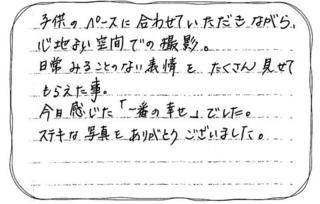 子供のペースに合わせていただきながら、
心地よい空間での撮影。
日常みることのない表情を たくさん見せて
もらえた事。
今日感じた「一番の幸せ」でした。
ステキな写真をありがとうございました。